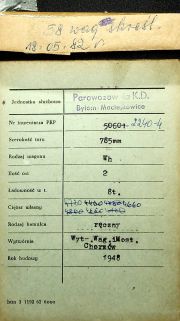 58 wag skreśl.
18.05.82 r
Jednostka służbowa Parowozownia K.D.
Bytom Maciejkowice
Nr inwentarza PKP 50601 2240-4
Szerokość toru 785mm
Rodzaj wagonu Wh
Ilość osi 2
Ładowność w t. 8t.
Ciężar własny 4120 4400 4660
4260 4660
Rodzaj hamulca ręczny
Wytwórnia Wyt. Wag. i Most.
Chorzów
Rok budowy 1948